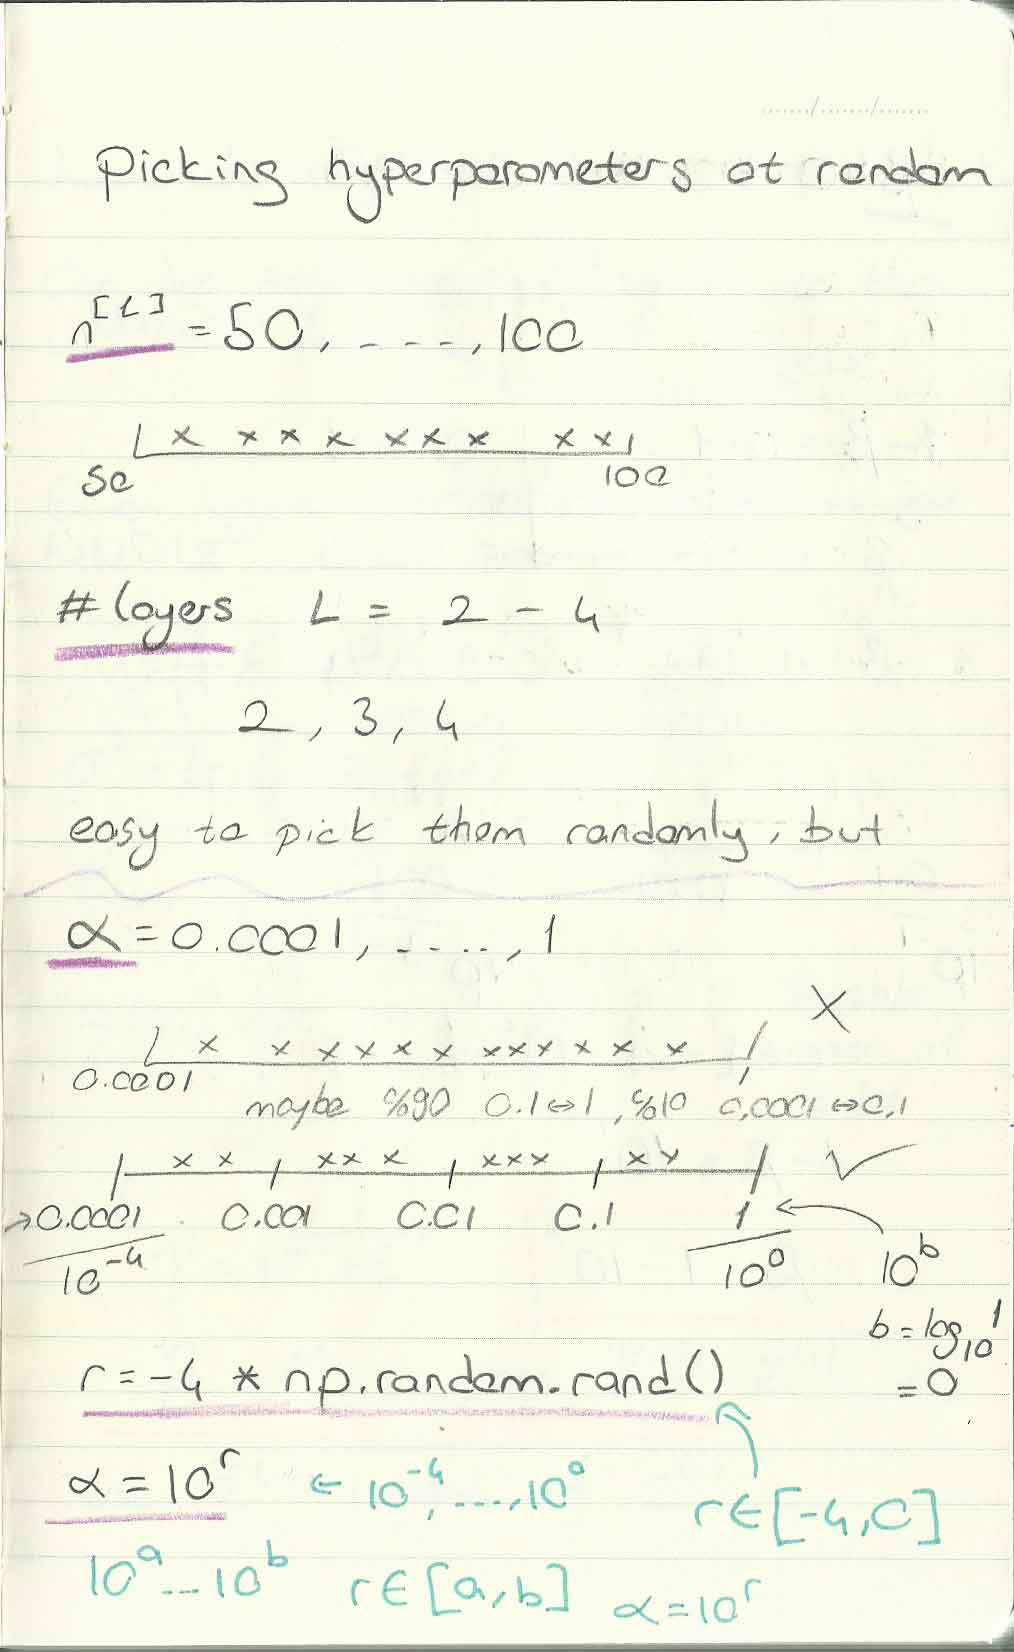 Picking hyperparameters at random
n^[l] = 50, ----, 100
x x x x x x x x x
50 100
# layers L = 2 - 4
2, 3, 4
easy to pick them randomly, but
α = 0.0001, ....., 1
X
x x x x x x x x x x x x
0.0001 1
maybe %90 0.1 ↔ 1, %10 0,0001 ↔ 0,1
x x x x x x x x x x ✓
→ 0.0001 0.001 0.01 0.1 1 ←
10^-4 10^0 10^b
b = log_10 1
= 0
r = -4 * np.random.rand()
α = 10^r ← 10^-4, ...., 10^0
r ∈ [-4, 0]
10^a ... 10^b r ∈ [a, b] α = 10^r